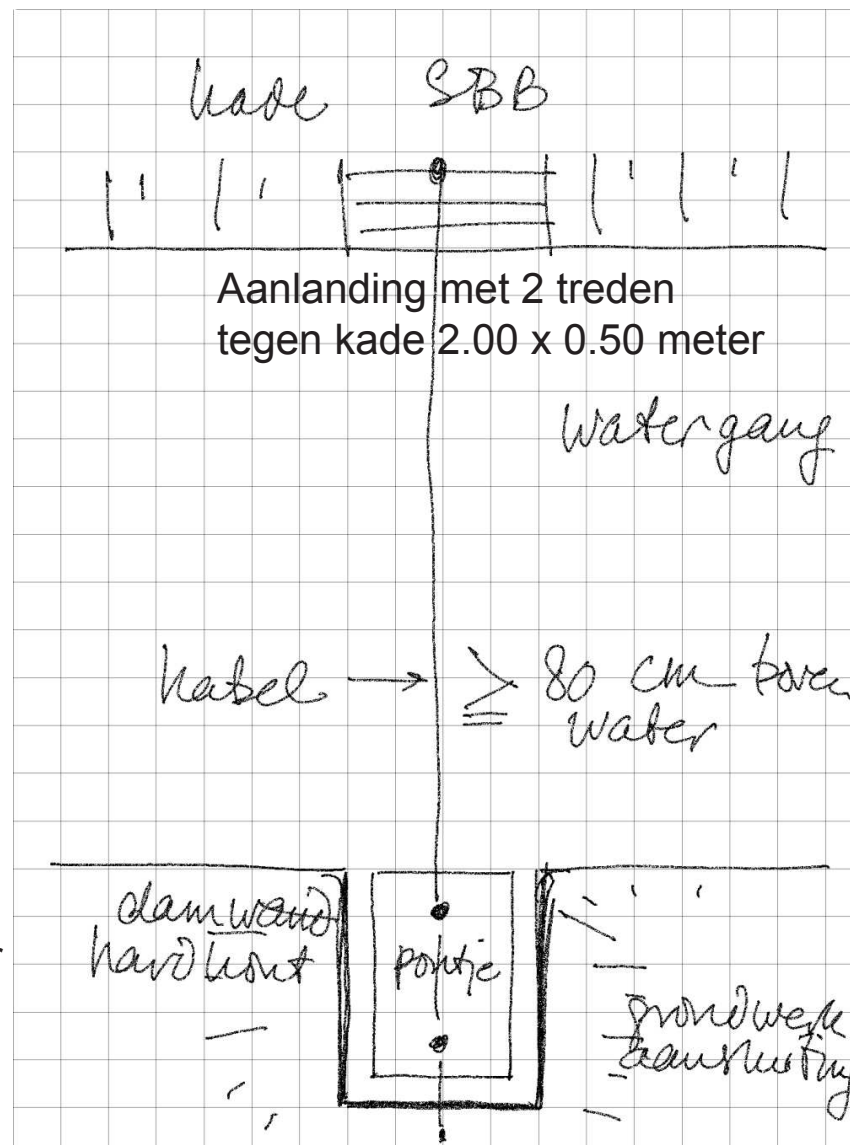 kade SBB
Aanlanding met 2 treden
tegen kade 2.00 x 0.50 meter
watergang
kabel → ≧ 80 cm boven
water
damwand
hardhout
pontje
grondwerk
aansluiting